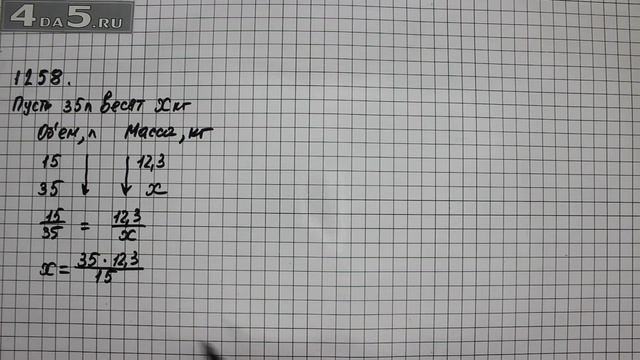 4DA5.RU
1258.
Пусть 35л весят x кг
Объем, л Масса, кг
15 ↓ ↓ 12,3
35 x
15/35 = 12,3/x
x = 35 · 12,3/15